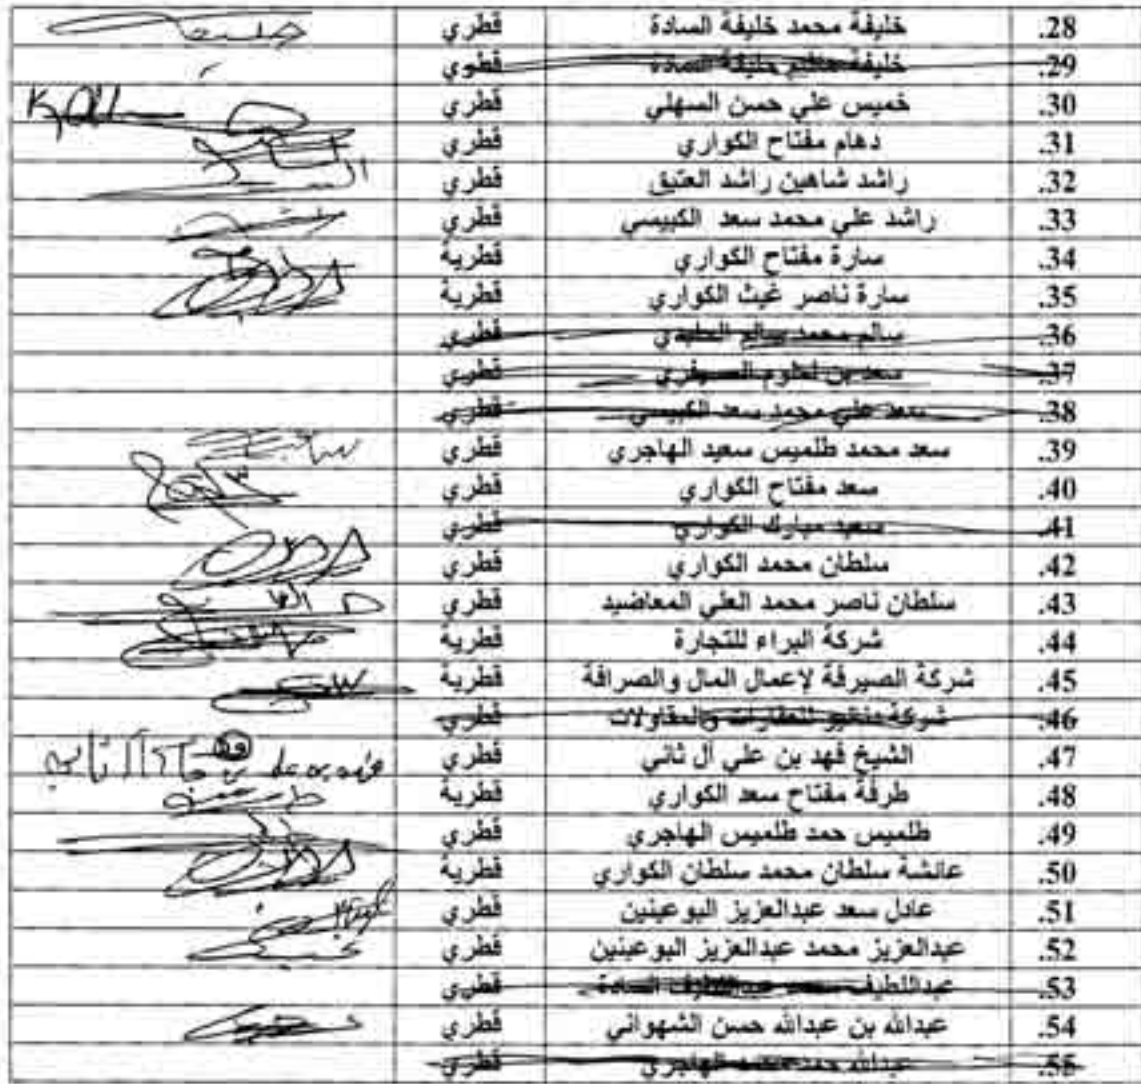 28. خليفة محمد خليفة السادة قطري
29. خليفة خليفة السادة قطري
30. خميس علي حسن السهلي قطري
31. دهام مفتاح الكواري قطري
32. راشد شاهين راشد العتيق قطري
33. راشد علي محمد سعد الكبيسي قطري
34. سارة مفتاح الكواري قطرية
35. سارة ناصر غيث الكواري قطرية
36. سالم محمد سالم قطري
37. سعد بن قطري
38. سعد علي محمد سعد الكبيسي قطري
39. سعد محمد طلميس سعيد الهاجري قطري
40. سعد مفتاح الكواري قطري
41. سعيد مبارك الكواري قطري
42. سلطان محمد الكواري قطري
43. سلطان ناصر محمد العلي المعاضيد قطري
44. شركة البراء للتجارة قطرية
45. شركة الصيرفة لإعمال المال والصرافة قطرية
46. شركة للعقارات والمقاولات قطرية
47. الشيخ فهد بن علي آل ثاني قطري
48. طرفة مفتاح سعد الكواري قطرية
49. طلميس حمد طلميس الهاجري قطري
50. عائشة سلطان محمد سلطان الكواري قطرية
51. عادل سعد عبدالعزيز البوعينين قطري
52. عبدالعزيز محمد عبدالعزيز البوعينين قطري
53. عبداللطيف عبداللطيف السادة قطري
54. عبدالله بن عبدالله حسن الشهواني قطري
55. عبدالله حمد الهاجري قطري